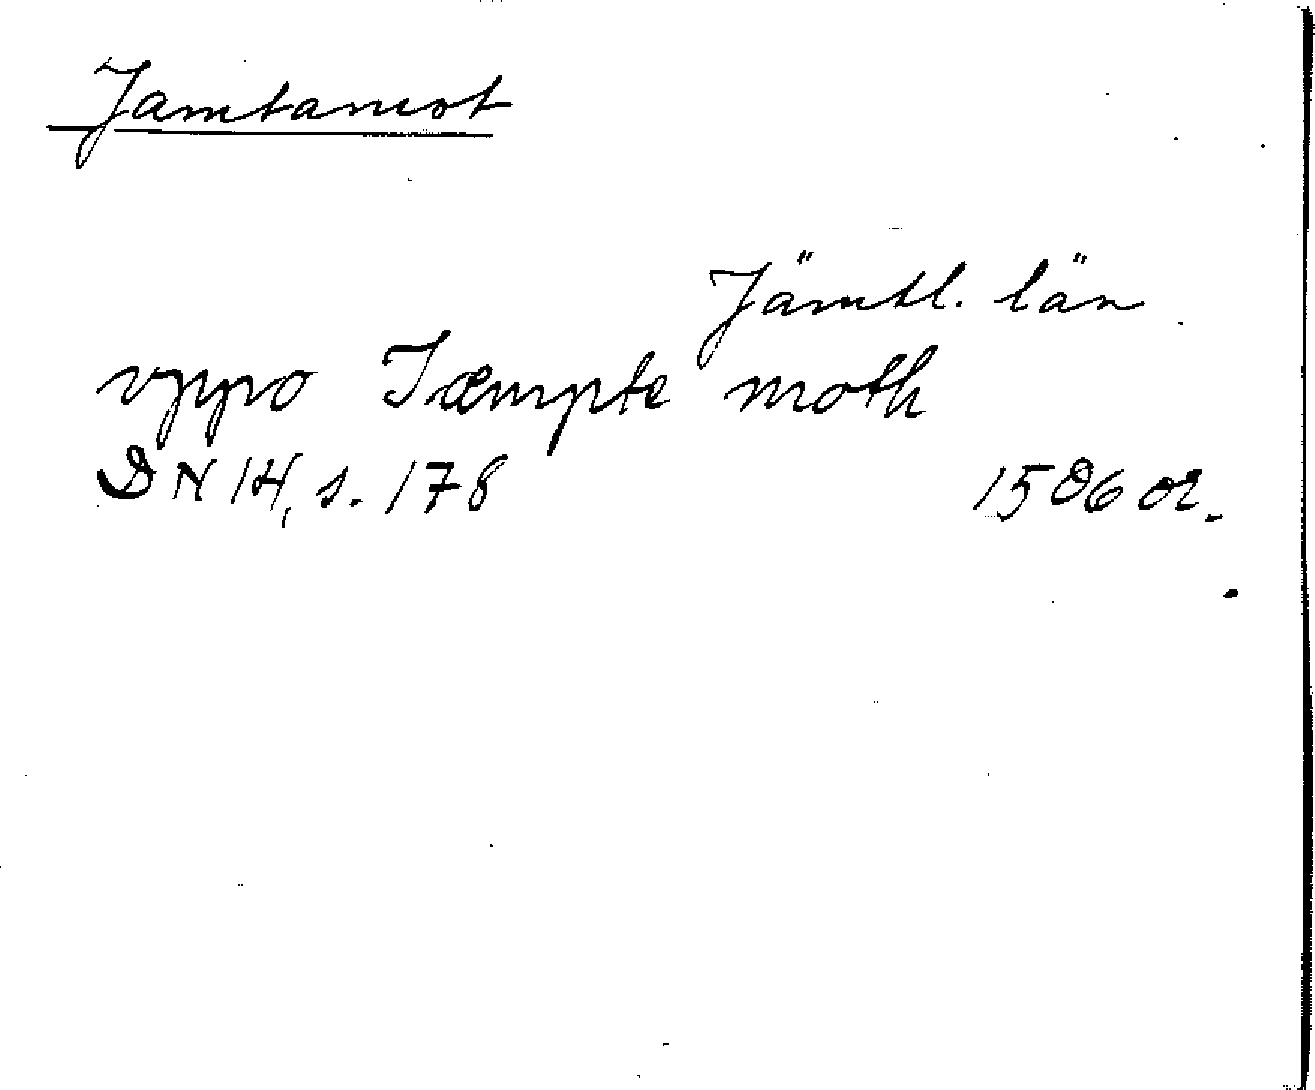 Jamtamot
Jämtl. län
vppo Jæmpte moth
DN 14, s. 178 1506 or.